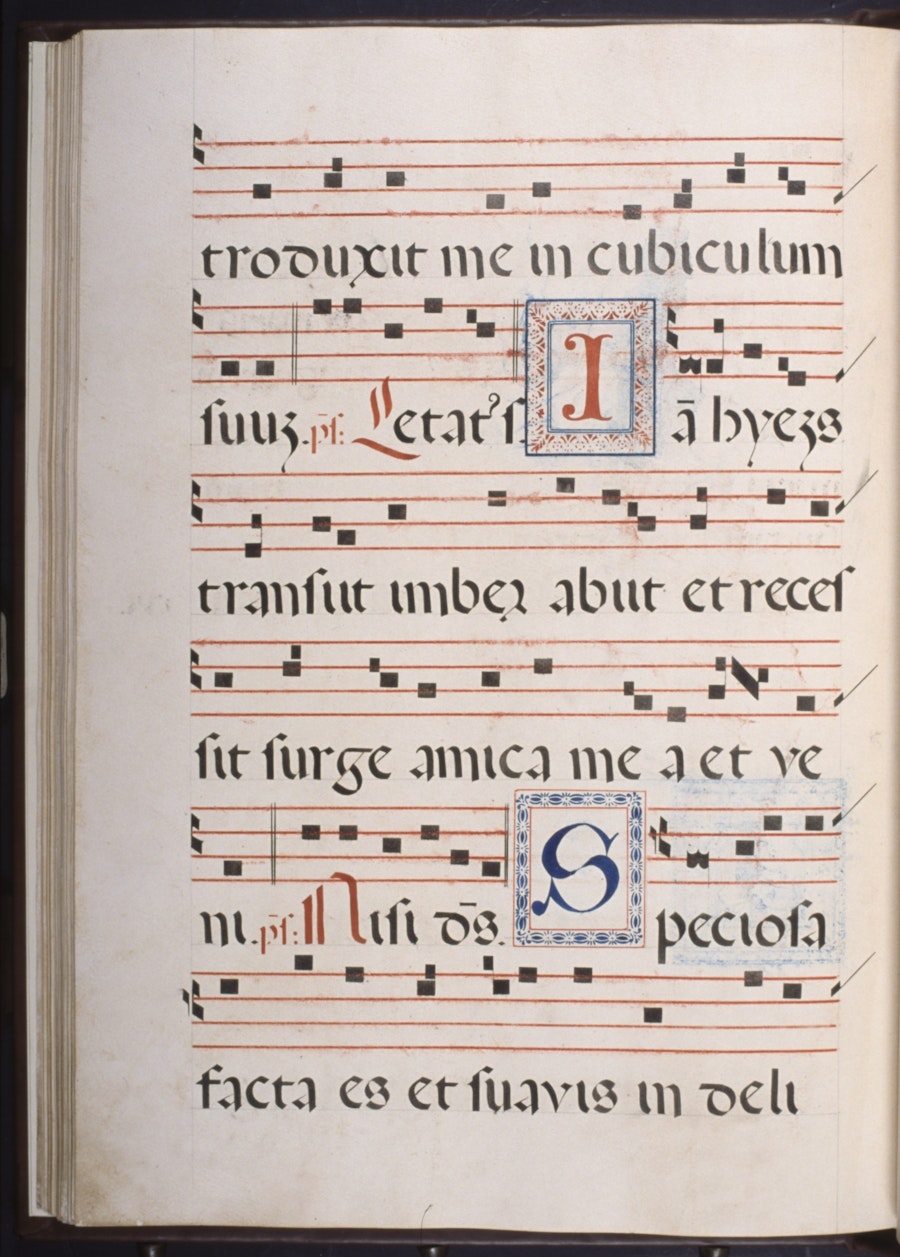 troduxit me in cubiculum
suuȝ. p̄s: Letatꝰ s. I ā hyeȝs
transiit imbeꝛ abiit et reces
sit surge amica me a et ve
ni. p̄s: Nisi dn̄s. S peciosa
facta es et suavis in deli